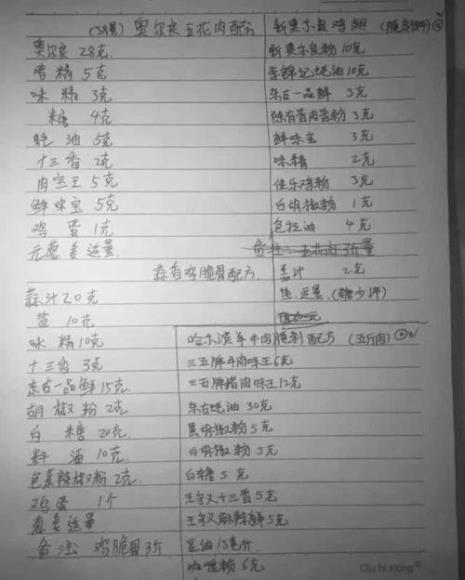 (3斤量) 奥尔良五花肉配方
奥尔良 28克
香精 5克
味精 3克
糖 4克
蚝油 5克
十三香 2克
肉宝王 5克
鲜味宝 5克
鸡蛋 1克
元葱姜适量
新奥尔良鸡翅 (腌制料)
新奥尔良粉 10克
李锦记蚝油 10克
东古一品鲜 3克
鲜味宝 3克
味精 2克
佳乐鸡粉 3克
白胡椒粉 1克
色拉油 4克
备注:五花肉3斤量
姜汁 2克
盐.适量.(糖少许)
蒜香鸡脆骨配方
蒜汁 20克
盐 10克
味精 10克
十三香 3克
东古一品鲜 15克
胡椒粉 2克
白糖 20克
料酒 10克
色素辣椒粉 2克
鸡蛋 1个
葱姜适量
备注 鸡脆骨3斤
哈尔滨羊牛肉腌制配方 (五斤肉)
三五牌牛肉味王 6克
三五牌猪肉味王 12克
东古蚝油 30克
黑胡椒粉 5克
白胡椒粉 5克
白糖 5克
王守义十三香 5克
王守义麻辣鲜 5克
豆油 15毫升
咖喱粉 6克
Qiu bi xiong